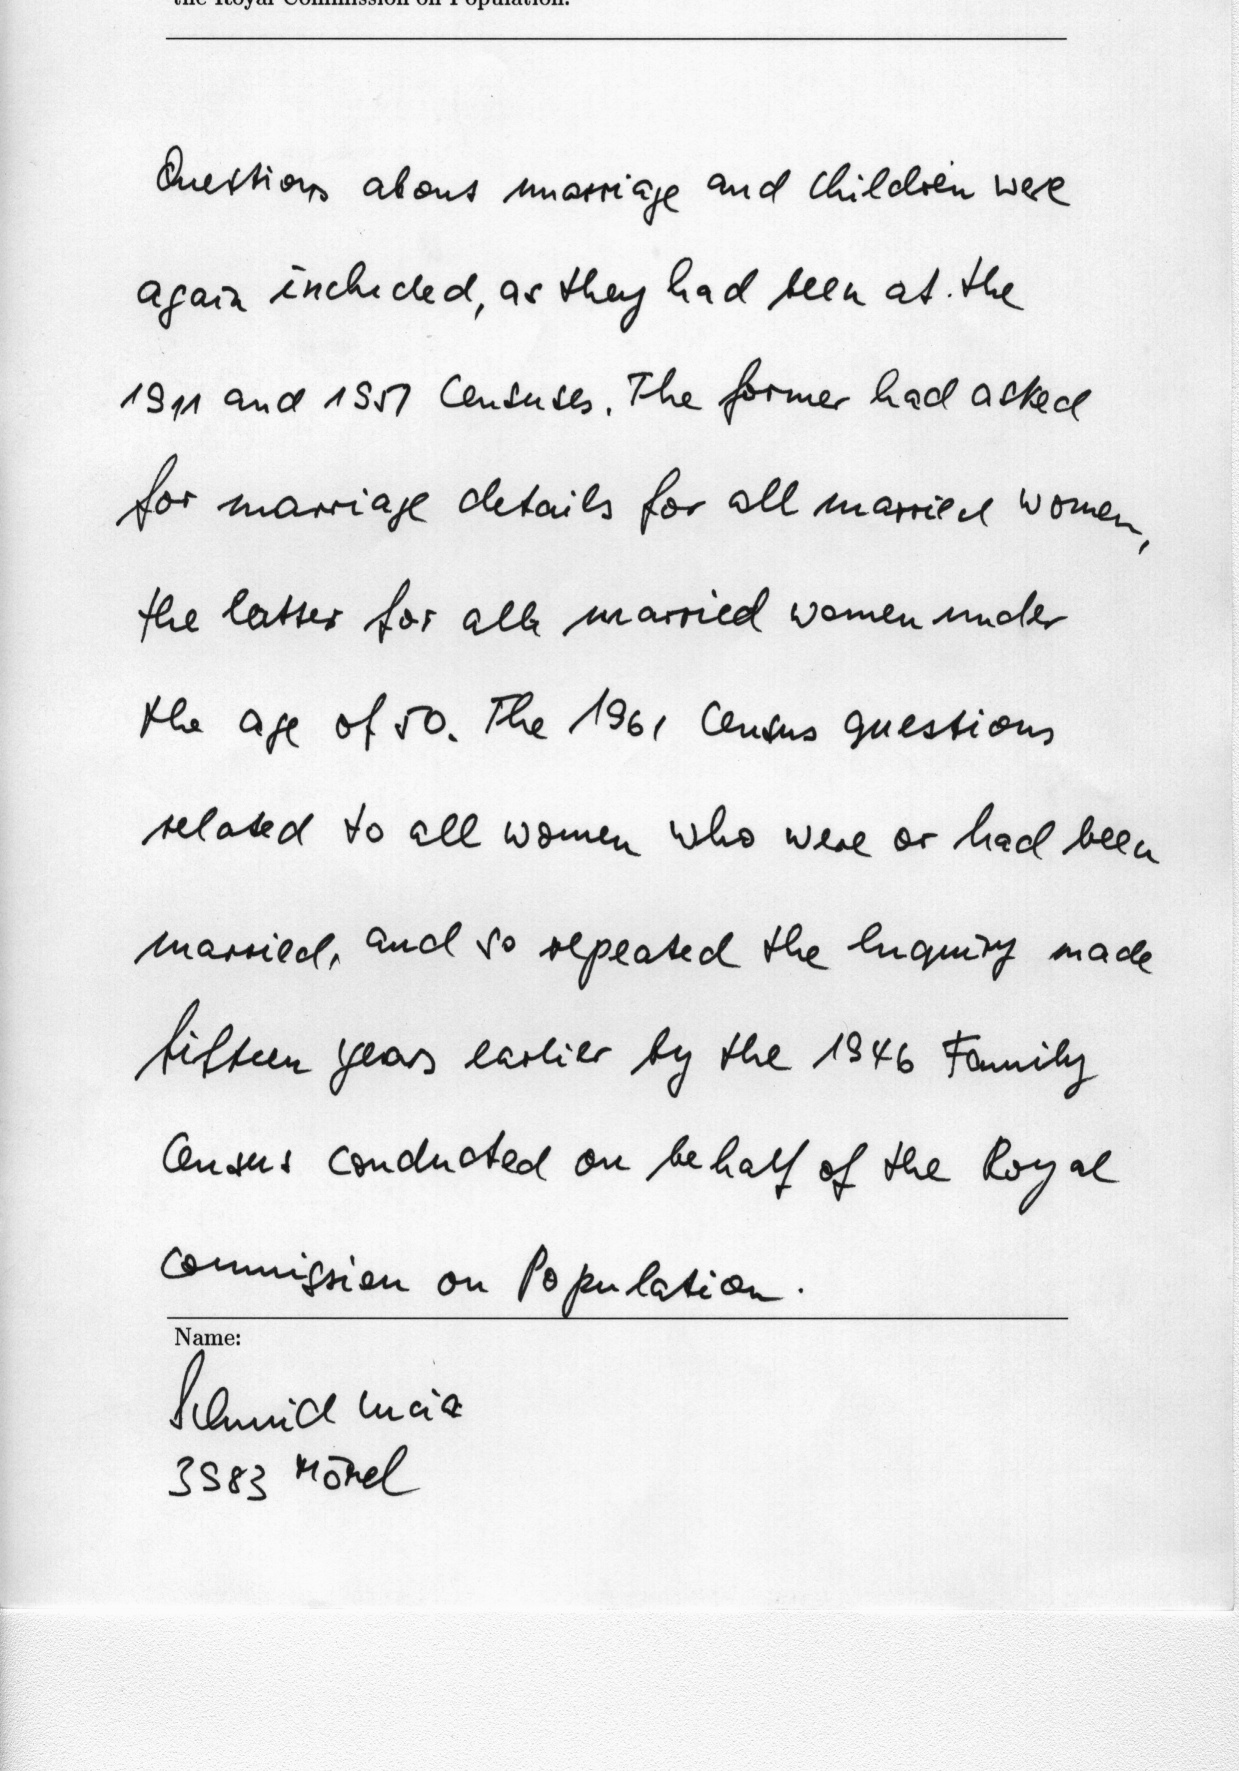 the Royal Commission on Population.
Questions about marriage and children were
again included, as they had been at the
1911 and 1951 Censuses. The former had asked
for marriage details for all married women,
the latter for all married women under
the age of 50. The 1961 Census questions
related to all women who were or had been
married, and so repeated the Inquiry made
fifteen years earlier by the 1946 Family
Census conducted on behalf of the Royal
commission on Population.
Name:
Schmid Lucia
3983 Mörel